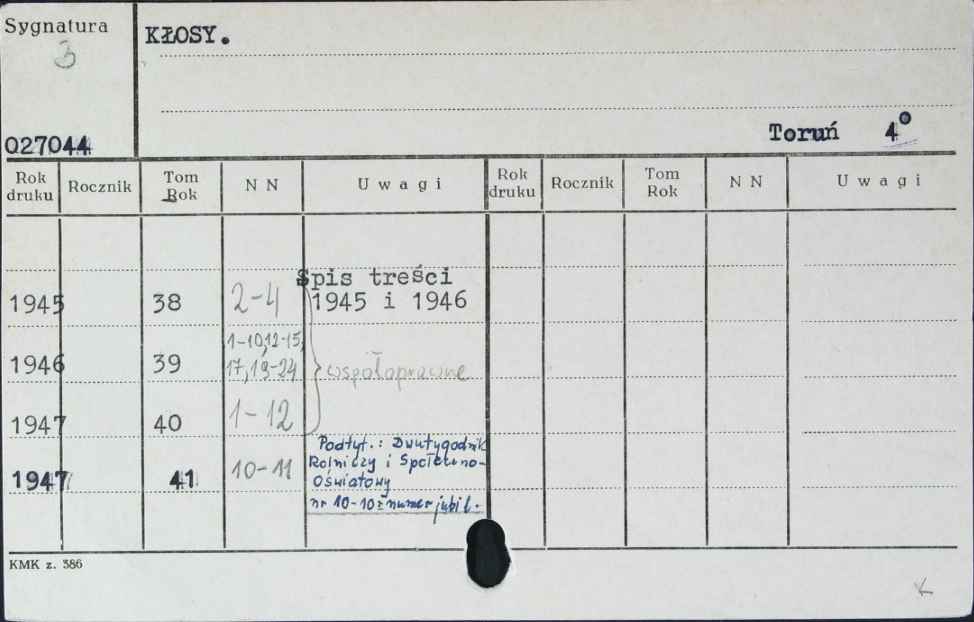 Sygnatura
3
027044
KŁOSY.
Toruń 4°
Rok druku Rocznik Tom Rok NN Uwagi Rok druku Rocznik Tom Rok NN Uwagi
Spis treści
1945 38 2-4 1945 i 1946
1-10,12-15,
1946 39 17,19-24 współoprawne
1947 40 1-12
Podtyt.: Dwutygodnik
Rolniczy i Społeczno-
1947 41 10-11 Oświatowy
nr 10-10 = numer jubil.
KMK z. 386